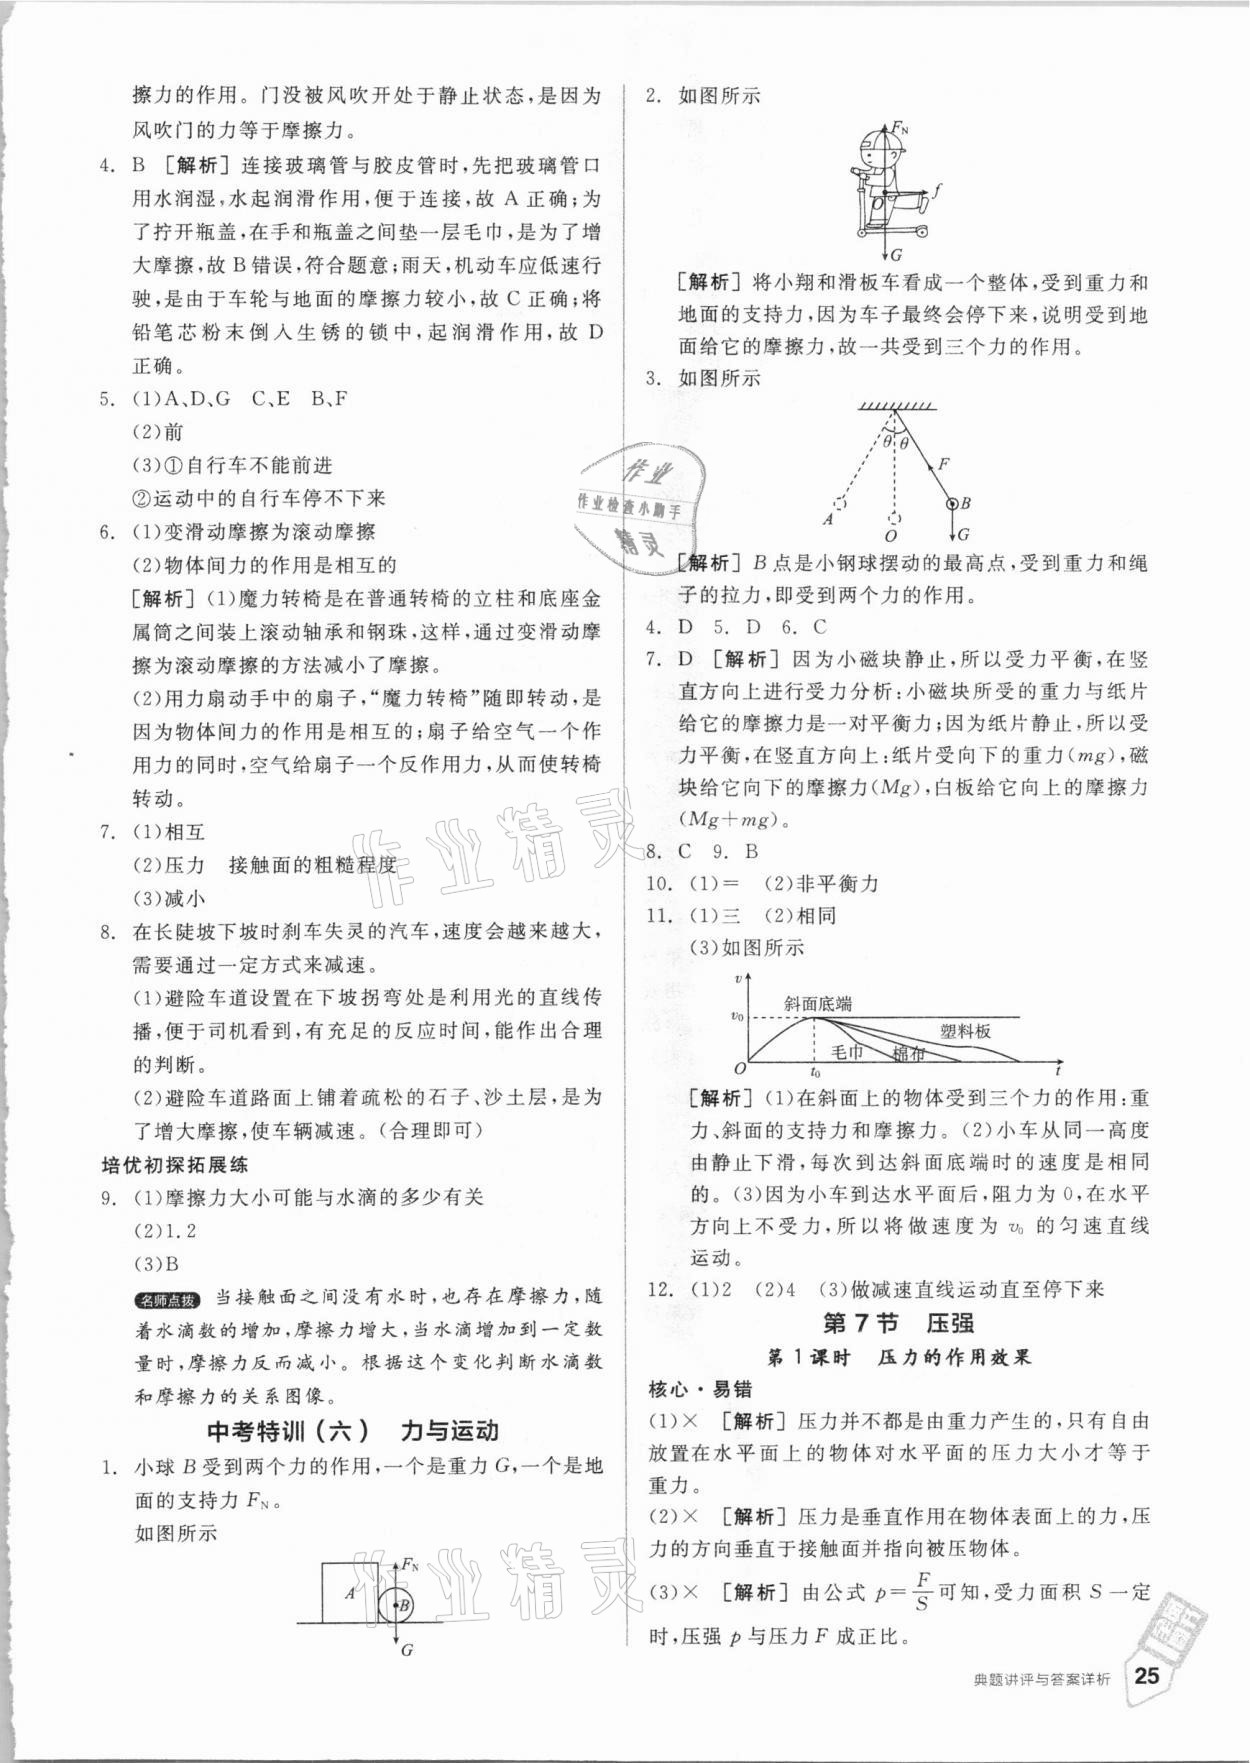 擦力的作用。门没被风吹开处于静止状态,是因为
风吹门的力等于摩擦力。
4. B [解析]连接玻璃管与胶皮管时,先把玻璃管口
用水润湿,水起润滑作用,便于连接,故 A 正确;为
了拧开瓶盖,在手和瓶盖之间垫一层毛巾,是为了增
大摩擦,故 B 错误,符合题意;雨天,机动车应低速行
驶,是由于车轮与地面的摩擦力较小,故 C 正确;将
铅笔芯粉末倒入生锈的锁中,起润滑作用,故 D
正确。
5. (1)A、D、G C、E B、F
(2)前
(3)①自行车不能前进
②运动中的自行车停不下来
6. (1)变滑动摩擦为滚动摩擦
(2)物体间力的作用是相互的
[解析](1)魔力转椅是在普通转椅的立柱和底座金
属筒之间装上滚动轴承和钢珠,这样,通过变滑动摩
擦为滚动摩擦的方法减小了摩擦。
(2)用力扇动手中的扇子,“魔力转椅”随即转动,是
因为物体间力的作用是相互的;扇子给空气一个作
用力的同时,空气给扇子一个反作用力,从而使转椅
转动。
7. (1)相互
(2)压力 接触面的粗糙程度
(3)减小
8. 在长陡坡下坡时刹车失灵的汽车,速度会越来越大,
需要通过一定方式来减速。
(1)避险车道设置在下坡拐弯处是利用光的直线传
播,便于司机看到,有充足的反应时间,能作出合理
的判断。
(2)避险车道路面上铺着疏松的石子、沙土层,是为
了增大摩擦,使车辆减速。(合理即可)
培优初探拓展练
9. (1)摩擦力大小可能与水滴的多少有关
(2)1,2
(3)B
名师点拨 当接触面之间没有水时,也存在摩擦力,随
着水滴数的增加,摩擦力增大,当水滴增加到一定数
量时,摩擦力反而减小。根据这个变化判断水滴数
和摩擦力的关系图像。
中考特训(六) 力与运动
1. 小球 B 受到两个力的作用,一个是重力 G,一个是地
面的支持力 FN。
如图所示
FN
A
B
G
2. 如图所示
FN
f
O
G
[解析]将小翔和滑板车看成一个整体,受到重力和
地面的支持力,因为车子最终会停下来,说明受到地
面给它的摩擦力,故一共受到三个力的作用。
3. 如图所示
θ θ
F
A
O
B
G
[解析]B 点是小钢球摆动的最高点,受到重力和绳
子的拉力,即受到两个力的作用。
4. D 5. D 6. C
7. D [解析]因为小磁块静止,所以受力平衡,在竖
直方向上进行受力分析:小磁块所受的重力与纸片
给它的摩擦力是一对平衡力;因为纸片静止,所以受
力平衡,在竖直方向上:纸片受向下的重力(mg),磁
块给它向下的摩擦力(Mg),白板给它向上的摩擦力
(Mg+mg)。
8. C 9. B
10. (1)= (2)非平衡力
11. (1)三 (2)相同
(3)如图所示
v
v0
斜面底端
塑料板
毛巾
棉布
O
t0
t
[解析](1)在斜面上的物体受到三个力的作用:重
力、斜面的支持力和摩擦力。(2)小车从同一高度
由静止下滑,每次到达斜面底端时的速度是相同
的。(3)因为小车到达水平面后,阻力为 0,在水平
方向上不受力,所以将做速度为 v0 的匀速直线
运动。
12. (1)2 (2)4 (3)做减速直线运动直至停下来
第 7 节 压强
第 1 课时 压力的作用效果
核心·易错
(1)× [解析]压力并不都是由重力产生的,只有自由
放置在水平面上的物体对水平面的压力大小才等于
重力。
(2)× [解析]压力是垂直作用在物体表面上的力,压
力的方向垂直于接触面并指向被压物体。
(3)× [解析]由公式 p=F/S可知,受力面积 S 一定
时,压强 p 与压力 F 成正比。
典题讲评与答案详析 25
作业
作业检查小助手
精灵
作业精灵
作业精灵